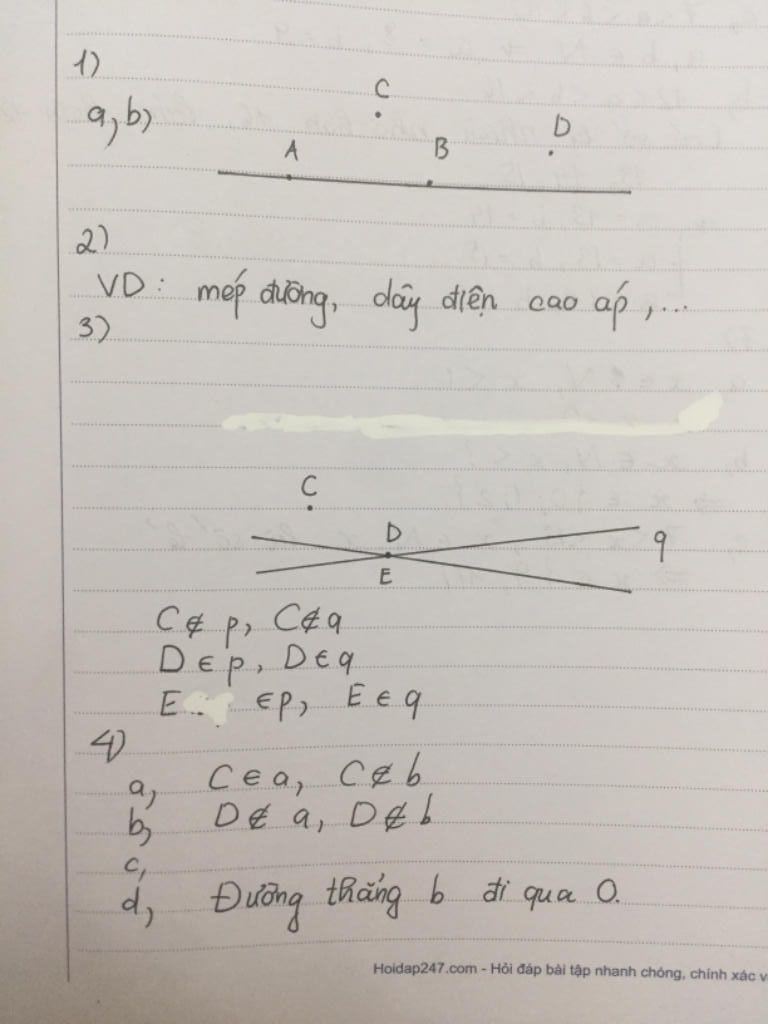 1)
C
a, b,
D
A
B
2)
VD: mép đường, dây điện cao áp, ...
3)
C
D
q
E
C ∉ p, C ∉ q
D ∈ p, D ∈ q
E ∈ p, E ∈ q
4)
a, C ∈ a, C ∉ b
b, D ∉ a, D ∉ b
c,
d, Đường thẳng b đi qua O.
Hoidap247.com - Hỏi đáp bài tập nhanh chóng, chính xác v